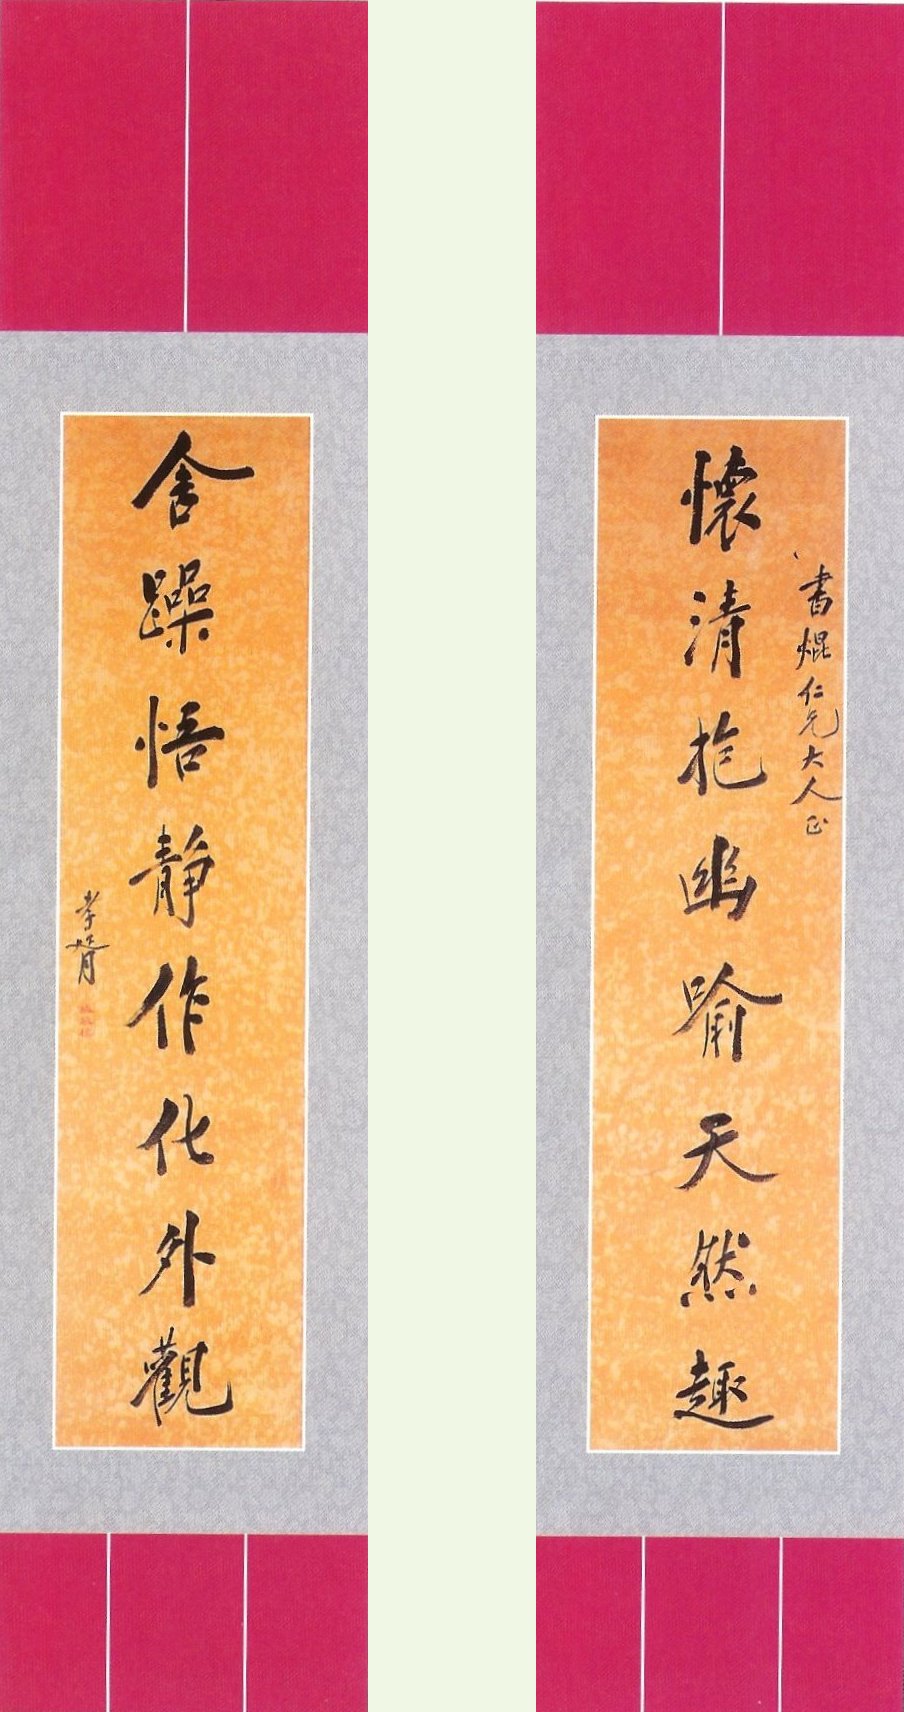 書焜仁兄大人正
懷清抱幽喻天然趣
舍躁悟靜作化外觀
孝胥